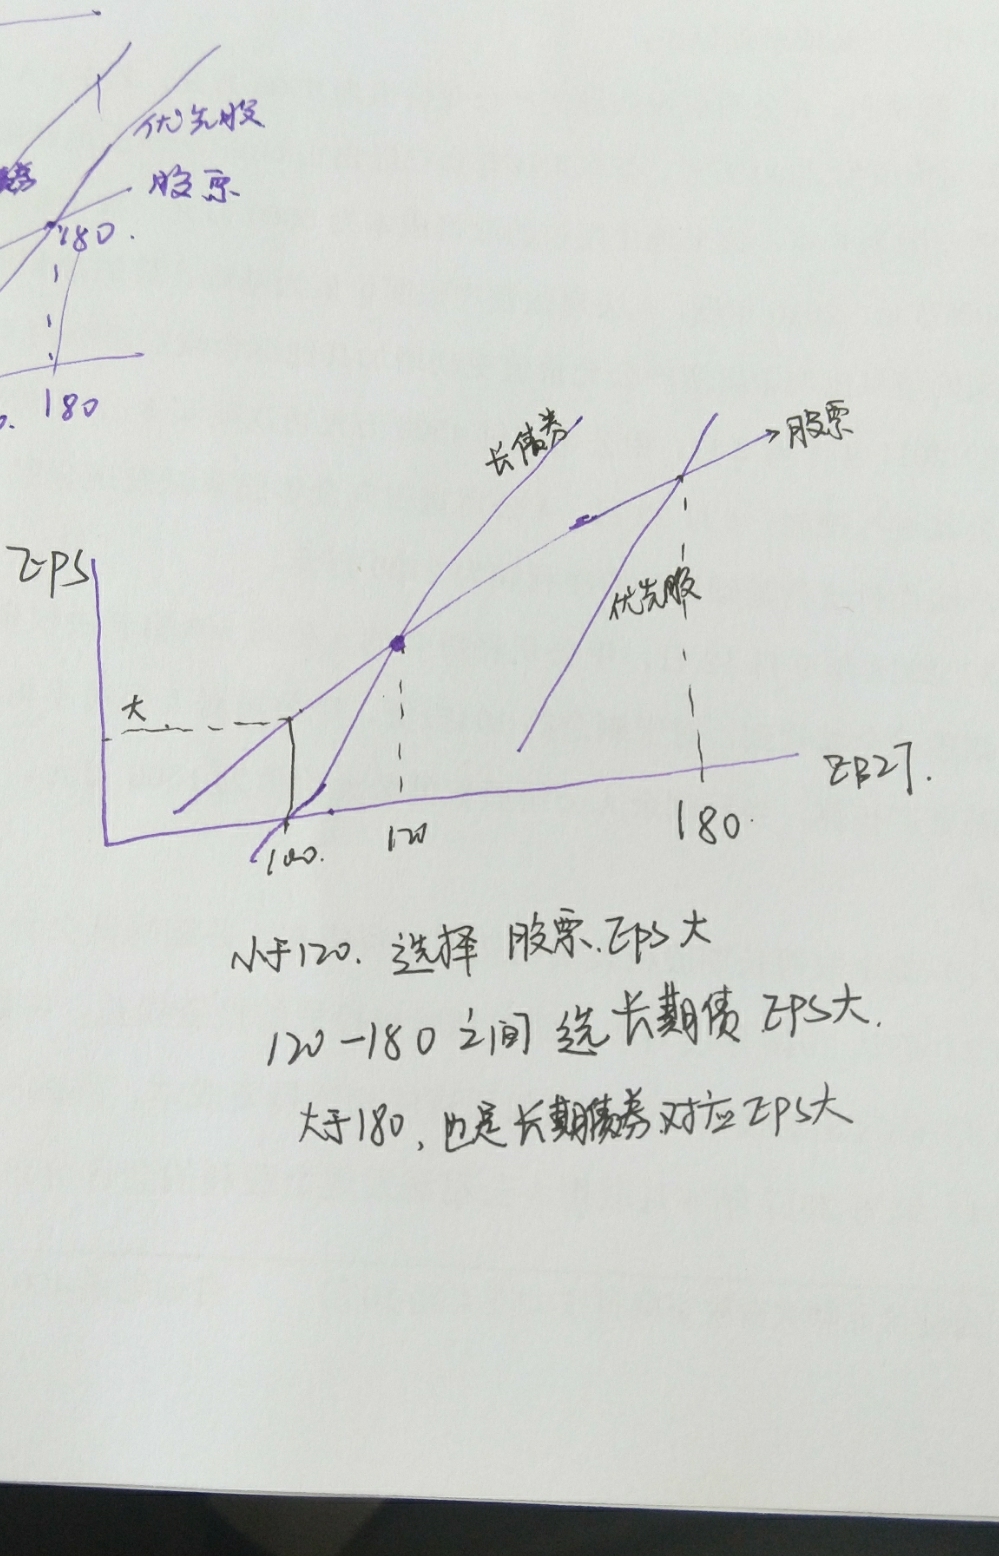 优先股
股票
180.
180
长债券
股票
EPS
优先股
大
EBIT.
100.
120
180.
小于120. 选择 股票.EPS大
120-180之间 选长期债 EPS大.
大于180, 也是长期债券对应EPS大